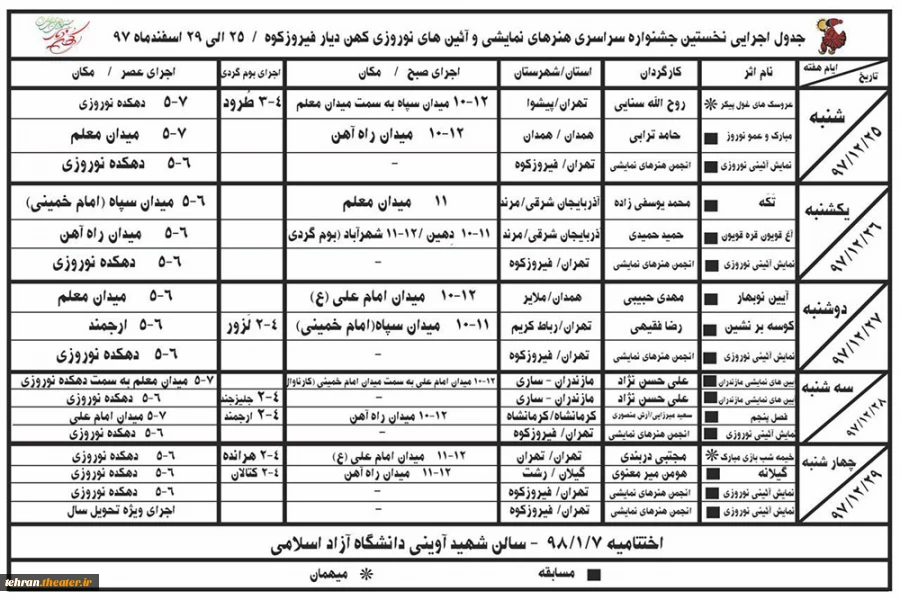 جدول اجرایی نخستین جشنواره سراسری هنرهای نمایشی و آئین های نوروزی کهن دیار فیروزکوه / ۲۵ الی ۲۹ اسفندماه ۹۷
ایام هفته تاریخ نام اثر کارگردان استان/شهرستان اجرای صبح / مکان اجرای بوم گردی اجرای عصر / مکان
شنبه ۹۷/۱۲/۲۵
عروسک های غول پیکر ※ روح الله سنایی تهران/پیشوا ۱۰-۱۲ میدان سپاه به سمت میدان معلم ۳-۴ طُرود ۵-۷ دهکده نوروزی
مبارک و عمو نوروز ■ حامد ترابی همدان/ همدان ۱۰-۱۲ میدان راه آهن ۵-۷ میدان معلم
نمایش آئینی نوروزی ■ انجمن هنرهای نمایشی تهران/ فیروزکوه - ۵-۶ دهکده نوروزی
یکشنبه ۹۷/۱۲/۲۶
تکه ■ محمد یوسفی زاده آذربایجان شرقی/مرند ۱۱ میدان معلم ۵-۶ میدان سپاه (امام خمینی)
آغ قویون قره قویون ■ حمید حمیدی آذربایجان شرقی/مرند ۱۰-۱۱ دهین /۱۲-۱۱ شهرآباد (بوم گردی ۵-۶ میدان راه آهن
نمایش آئینی نوروزی ■ انجمن هنرهای نمایشی تهران/ فیروزکوه - ۵-۶ دهکده نوروزی
دوشنبه ۹۷/۱۲/۲۷
آیین نوبهار ■ مهدی حبیبی همدان/ملایر ۱۰-۱۲ میدان امام علی (ع) ۵-۶ میدان معلم
کوسه بر نشین ■ رضا فقیهی تهران/رباط کریم ۱۰-۱۱ میدان سپاه(امام خمینی) ۲-۴ لَزور ۵-۶ ارجمند
نمایش آئینی نوروزی ■ انجمن هنرهای نمایشی تهران/ فیروزکوه - ۵-۶ دهکده نوروزی
سه شنبه ۹۷/۱۲/۲۸
آیین های نمایشی مازندران ■ علی حسن نژاد مازندران - ساری ۱۰-۱۲ میدان امام علی به سمت میدان امام خمینی (کارناوال) ۵-۷ میدان معلم به سمت دهکده نوروزی
آیین های نمایشی مازندران ■ علی حسن نژاد مازندران - ساری - ۲-۴ جلیزجند ۵-۶ دهکده نوروزی
فصل پنجم ■ سعید میرزایی/آرش منصوری کرمانشاه/کرمانشاه ۱۰-۱۲ میدان راه آهن ۲-۴ ارجمند ۵-۷ میدان امام علی
نمایش آئینی نوروزی ■ انجمن هنرهای نمایشی تهران/ فیروزکوه - ۵-۶ دهکده نوروزی
چهار شنبه ۹۷/۱۲/۲۹
خیمه شب بازی مبارک ※ مجتبی دربندی تهران/ تهران ۱۱-۱۲ میدان امام علی (ع) ۲-۴ هرانده ۵-۶ دهکده نوروزی
گیلانه ■ هومن میر معنوی گیلان / رشت ۱۱-۱۲ میدان راه آهن ۲-۴ کتالان ۵-۶ دهکده نوروزی
نمایش آئینی نوروزی ■ انجمن هنرهای نمایشی تهران/ فیروزکوه - ۵-۶ دهکده نوروزی
نمایش آئینی نوروزی ■ انجمن هنرهای نمایشی تهران/فیروزکوه - اجرای ویژه تحویل سال
اختتامیه ۹۸/۱/۷ - سالن شهید آوینی دانشگاه آزاد اسلامی
■ مسابقه ※ میهمان
tehran.theater.ir